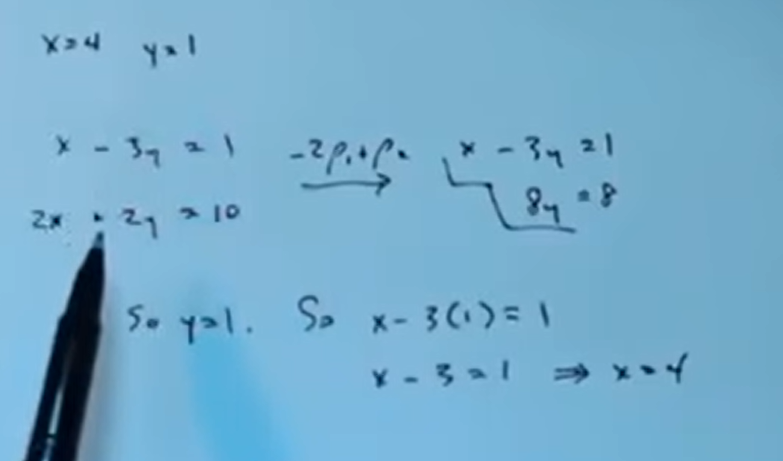 x = 4 y = 1
x - 3y = 1 -2ρ₁+ρ₂ x - 3y = 1
2x + 2y = 10 8y = 8
So y = 1. So x - 3(1) = 1
x - 3 = 1 ⇒ x = 4